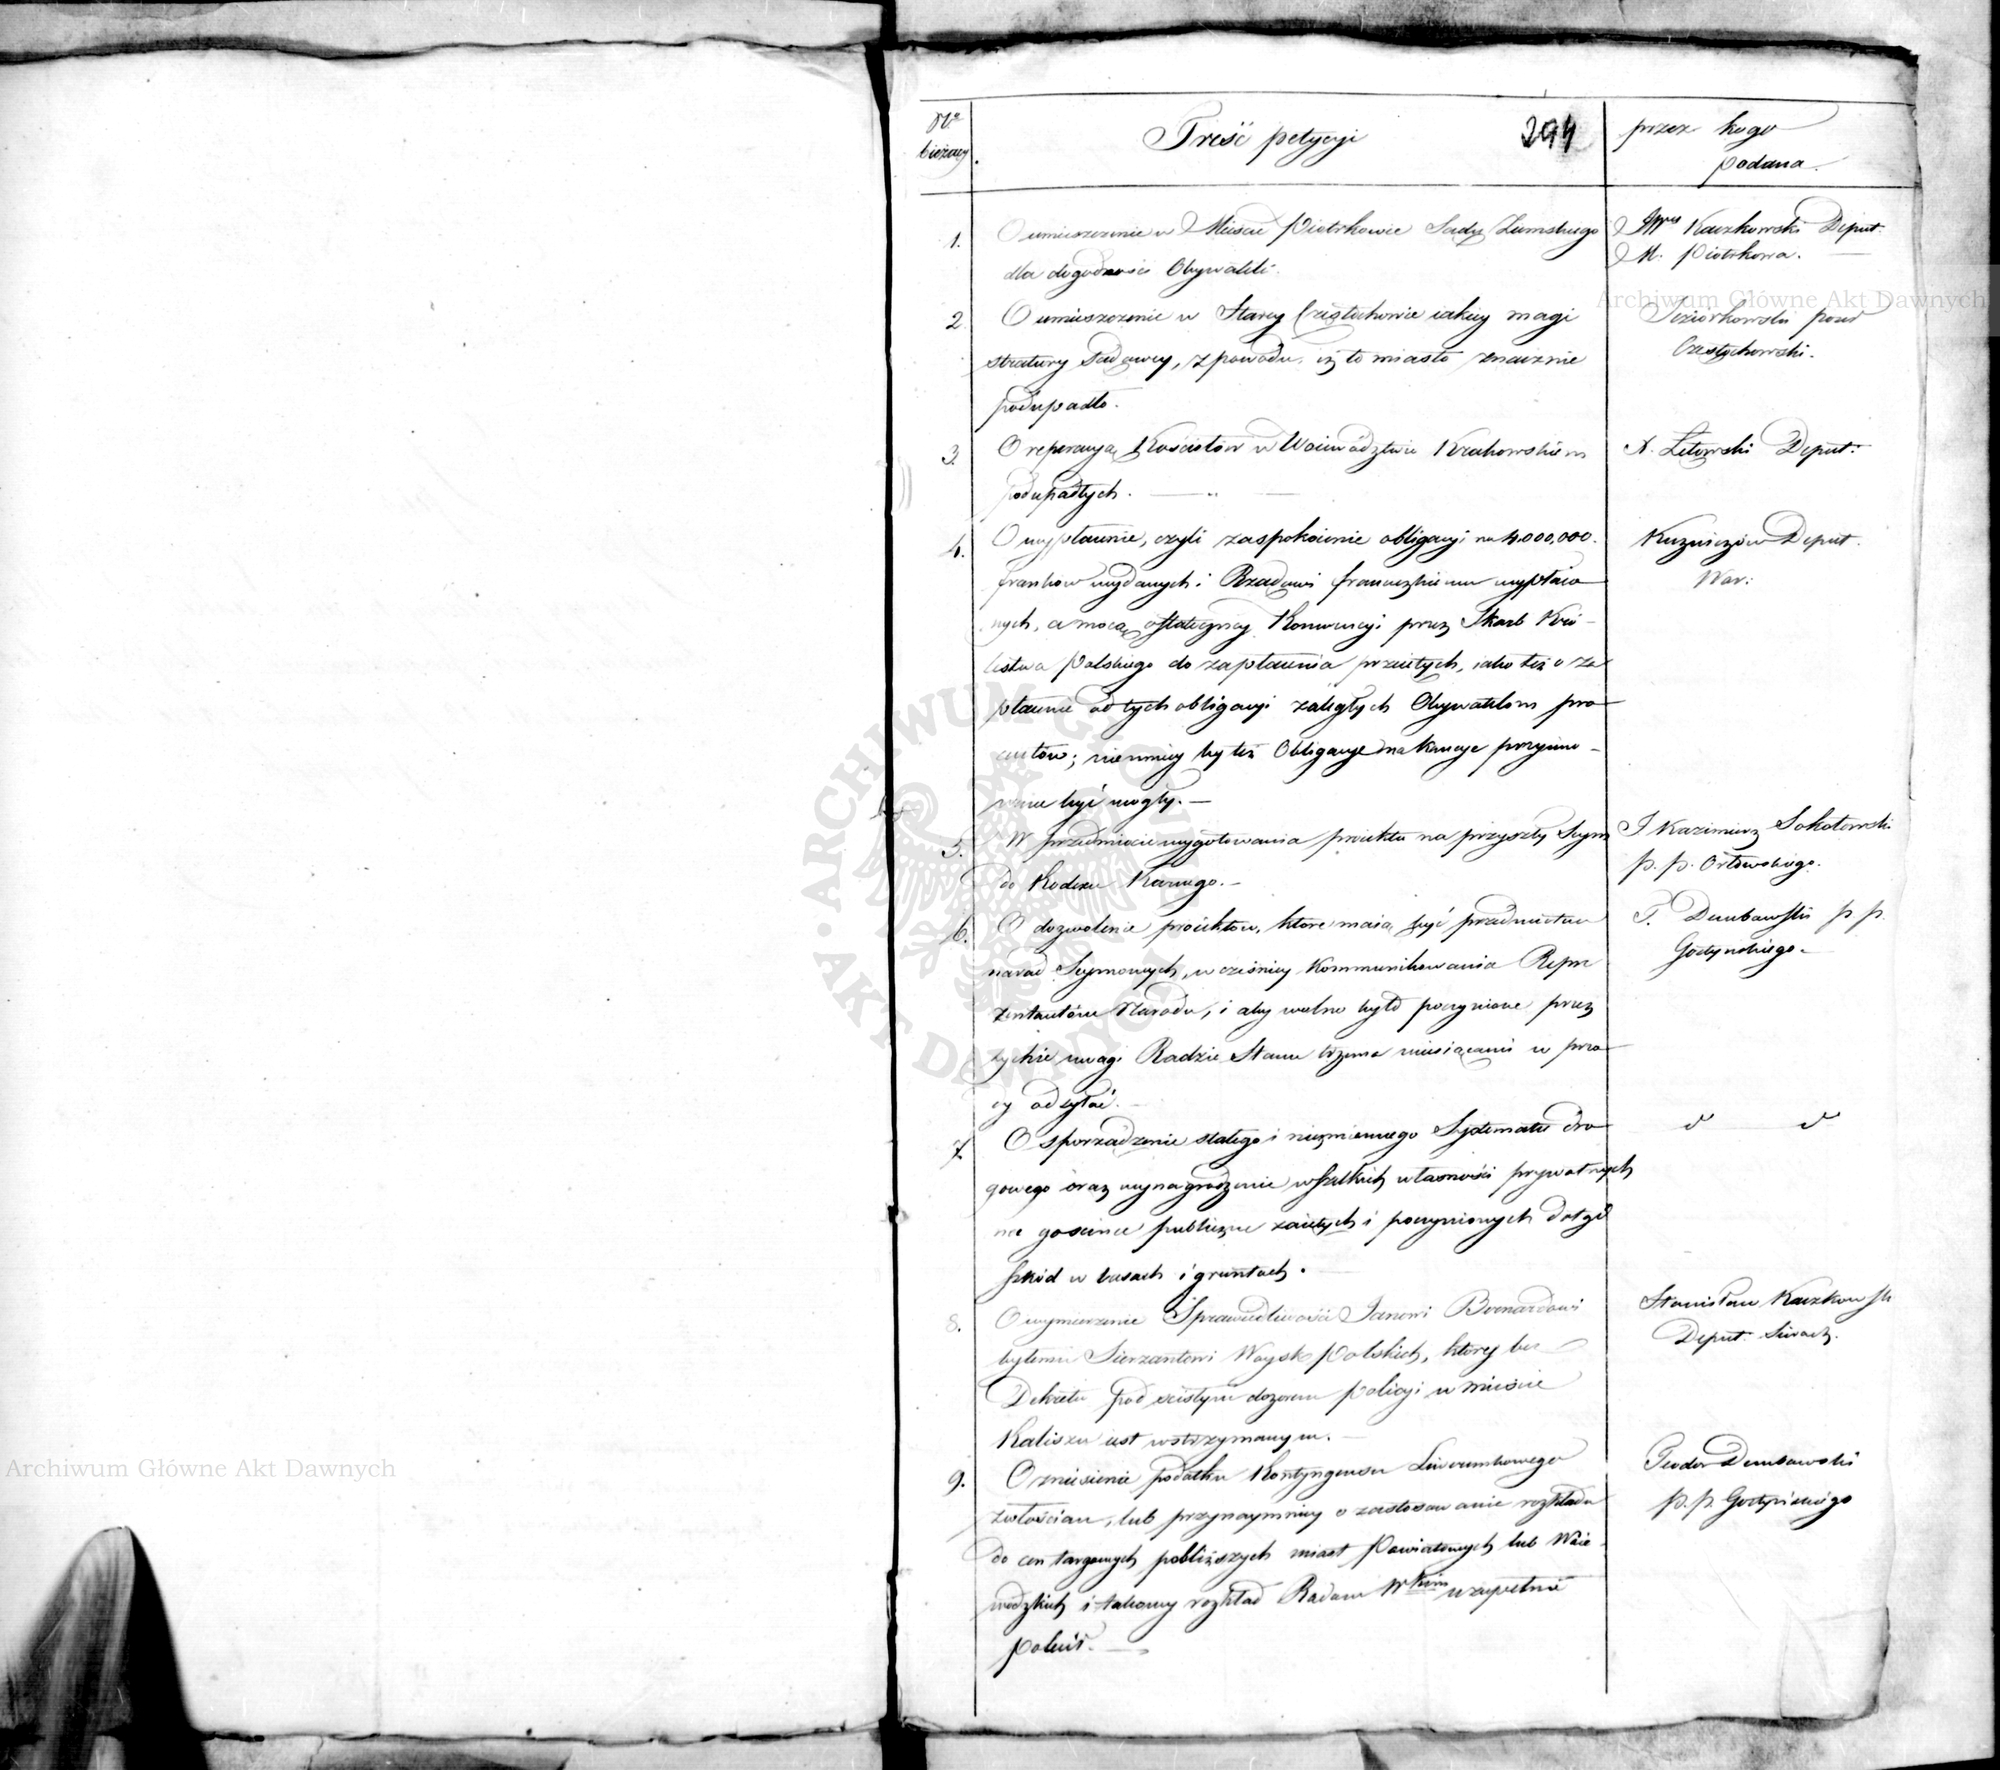 Nro bieżący.
Treść petycyi
294
przez kogo podana.
1.
O umieszczenie w Mieście Piotrkowie Sądu Ziemskiego
dla dogodności Obywateli.
Kaczkowski Deput.
M. Piotrkowa.
2.
O umieszczenie w Starey Częstochowie iakiey magi
stratury Sądowey, z powodu, iż to miasto znacznie
podupadło.
Jeziorkowski pow
Częstochowski.
3.
O reperacyą Kościołów w Woiewództwie Krakowskiem
podupadłych.
X. Łętowski Deput:
4.
O wypłacenie, czyli zaspokoienie obligacyi na 4.000,000.
franków wydanych i Rządowi francuzkiemu wypłaco
nych, a mocą ostateczney Konwencyi przez Skarb Kró-
lestwa Polskiego do zapłacenia przeiętych, iako też o za
płacenie od tych obligacyi zaległych Obywatelom pro
centów; niemniey by też Obligacye na Kaucye przyimo-
wane być mogły.
Deput.
War:
5.
W przedmiocie wygotowania proiektu na przyszły Seym
do Kodexu Karnego.
J Kazimierz Sokołowski
p. p. Orłowskiego.
6.
O dozwolenie proiektów, które maią być przedmiotem
narad Seymowych, wcześniey Kommunikowania Repre
zentantom Narodu, i aby wolno było poczynione przez
tychże uwagi Radzie Stanu trzema miesiącami w przo
dy odsyłać.
T. Dembowski p p.
Gostyńskiego.
7.
O sporządzenie stałego i niezmiennego Systematu dro
gowego oraz wynagrodzenie wszelkich własności prywatnych
na gościńce publiczne zaiętych i poczynionych dotąd
szkód w lasach i gruntach.
d d
8.
O wymierzenie Sprawiedliwości Janowi Bernardowi
byłemu Sierżantowi Woysk Polskich, który bez
Dekretu pod ścisłym dozorem Policyi w mieście
Kaliszu iest wstrzymanym.
Stanisław Kaczkowski
Deput. Sieradz.
9.
O zniesienie podatku Kontyngensu Liwerunkowego
z włościan, lub przynaymniey o zastosowanie rozkładu
do cen targowych pobliższych miast Powiatowych lub Woie
wódzkich i takowy rozkład Radom Wkim zupełnie
polecić.
Teodor Dembowski
p. p. Gostyńskiego
Archiwum Główne Akt Dawnych
Archiwum Główne Akt Dawnych
ARCHIWUM GŁÓWNE AKT DAWNYCH